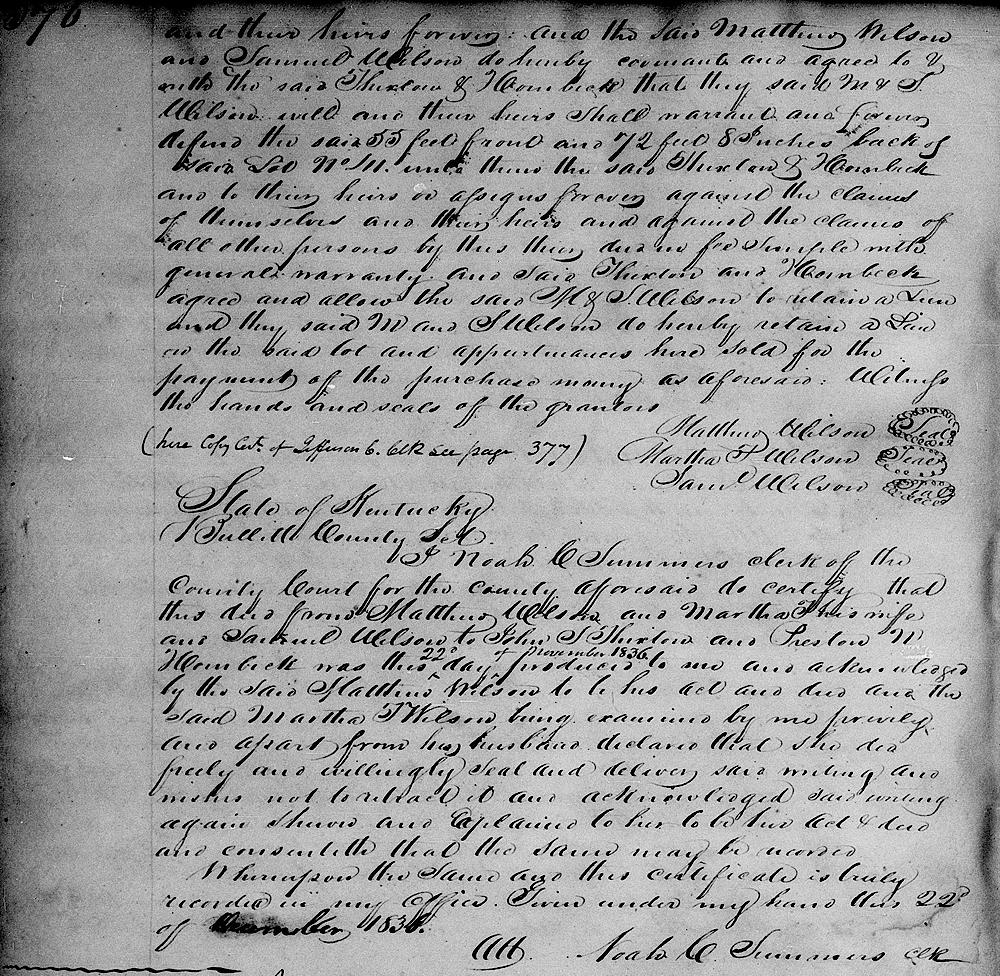 376
and their heirs forever: and the said Matthew Wilson
and Samuel Wilson do hereby covenant and agree to &
with the said Thurton & Hornbeck that they said M & S.
Wilson will and their heirs shall warrant and forever
defend the said 55 feet front and 72 feet 8 Inches back of
said Lot No 11. unto them the said Thixton & Hornbeck
and to their heirs or assigns forever against the claims
of themselves and their heirs and against the claims of
all other persons by this their deed in fee Simple with
general warranty. and Said Thixton and Hornbeck
agree and allow the said M & S. Wilson to retain a Lien
and they said M and S Wilson do hereby retain a Lien
on the said lot and appurtenances here sold for the
payment of the purchase money as aforesaid: Witness
the hands and seals of the grantors
Matthew Wilson Seal
(here Copy Cert. of Jefferson C. Clk see page 377)
Martha T Wilson Seal
Saml Wilson Seal
State of Kentucky
Bullitt County Sct.
I Noah C Summers clerk of the
County Court for the county aforesaid do certify that
this deed from Matthew Wilson and Martha T his wife
and Samuel Wilson to John S Thixton and Preston W
Hornbeck was this 22d day of November 1836 produced to me and acknowledged
by the said Matthew Wilson to be his act and deed and the
said Martha T Wilson being examined by me privily
and apart from her husband declared that she did
freely and willingly seal and deliver said writing and
wishes not to retract it and acknowledged said writing
again shewn and Explained to her to be her act & deed
and consenteth that the same may be recorded
Whereupon the Same and this certificate is truly
recorded in my Office. Given under my hand this 22d
of 1836.
Att. Noah C. Summers clk